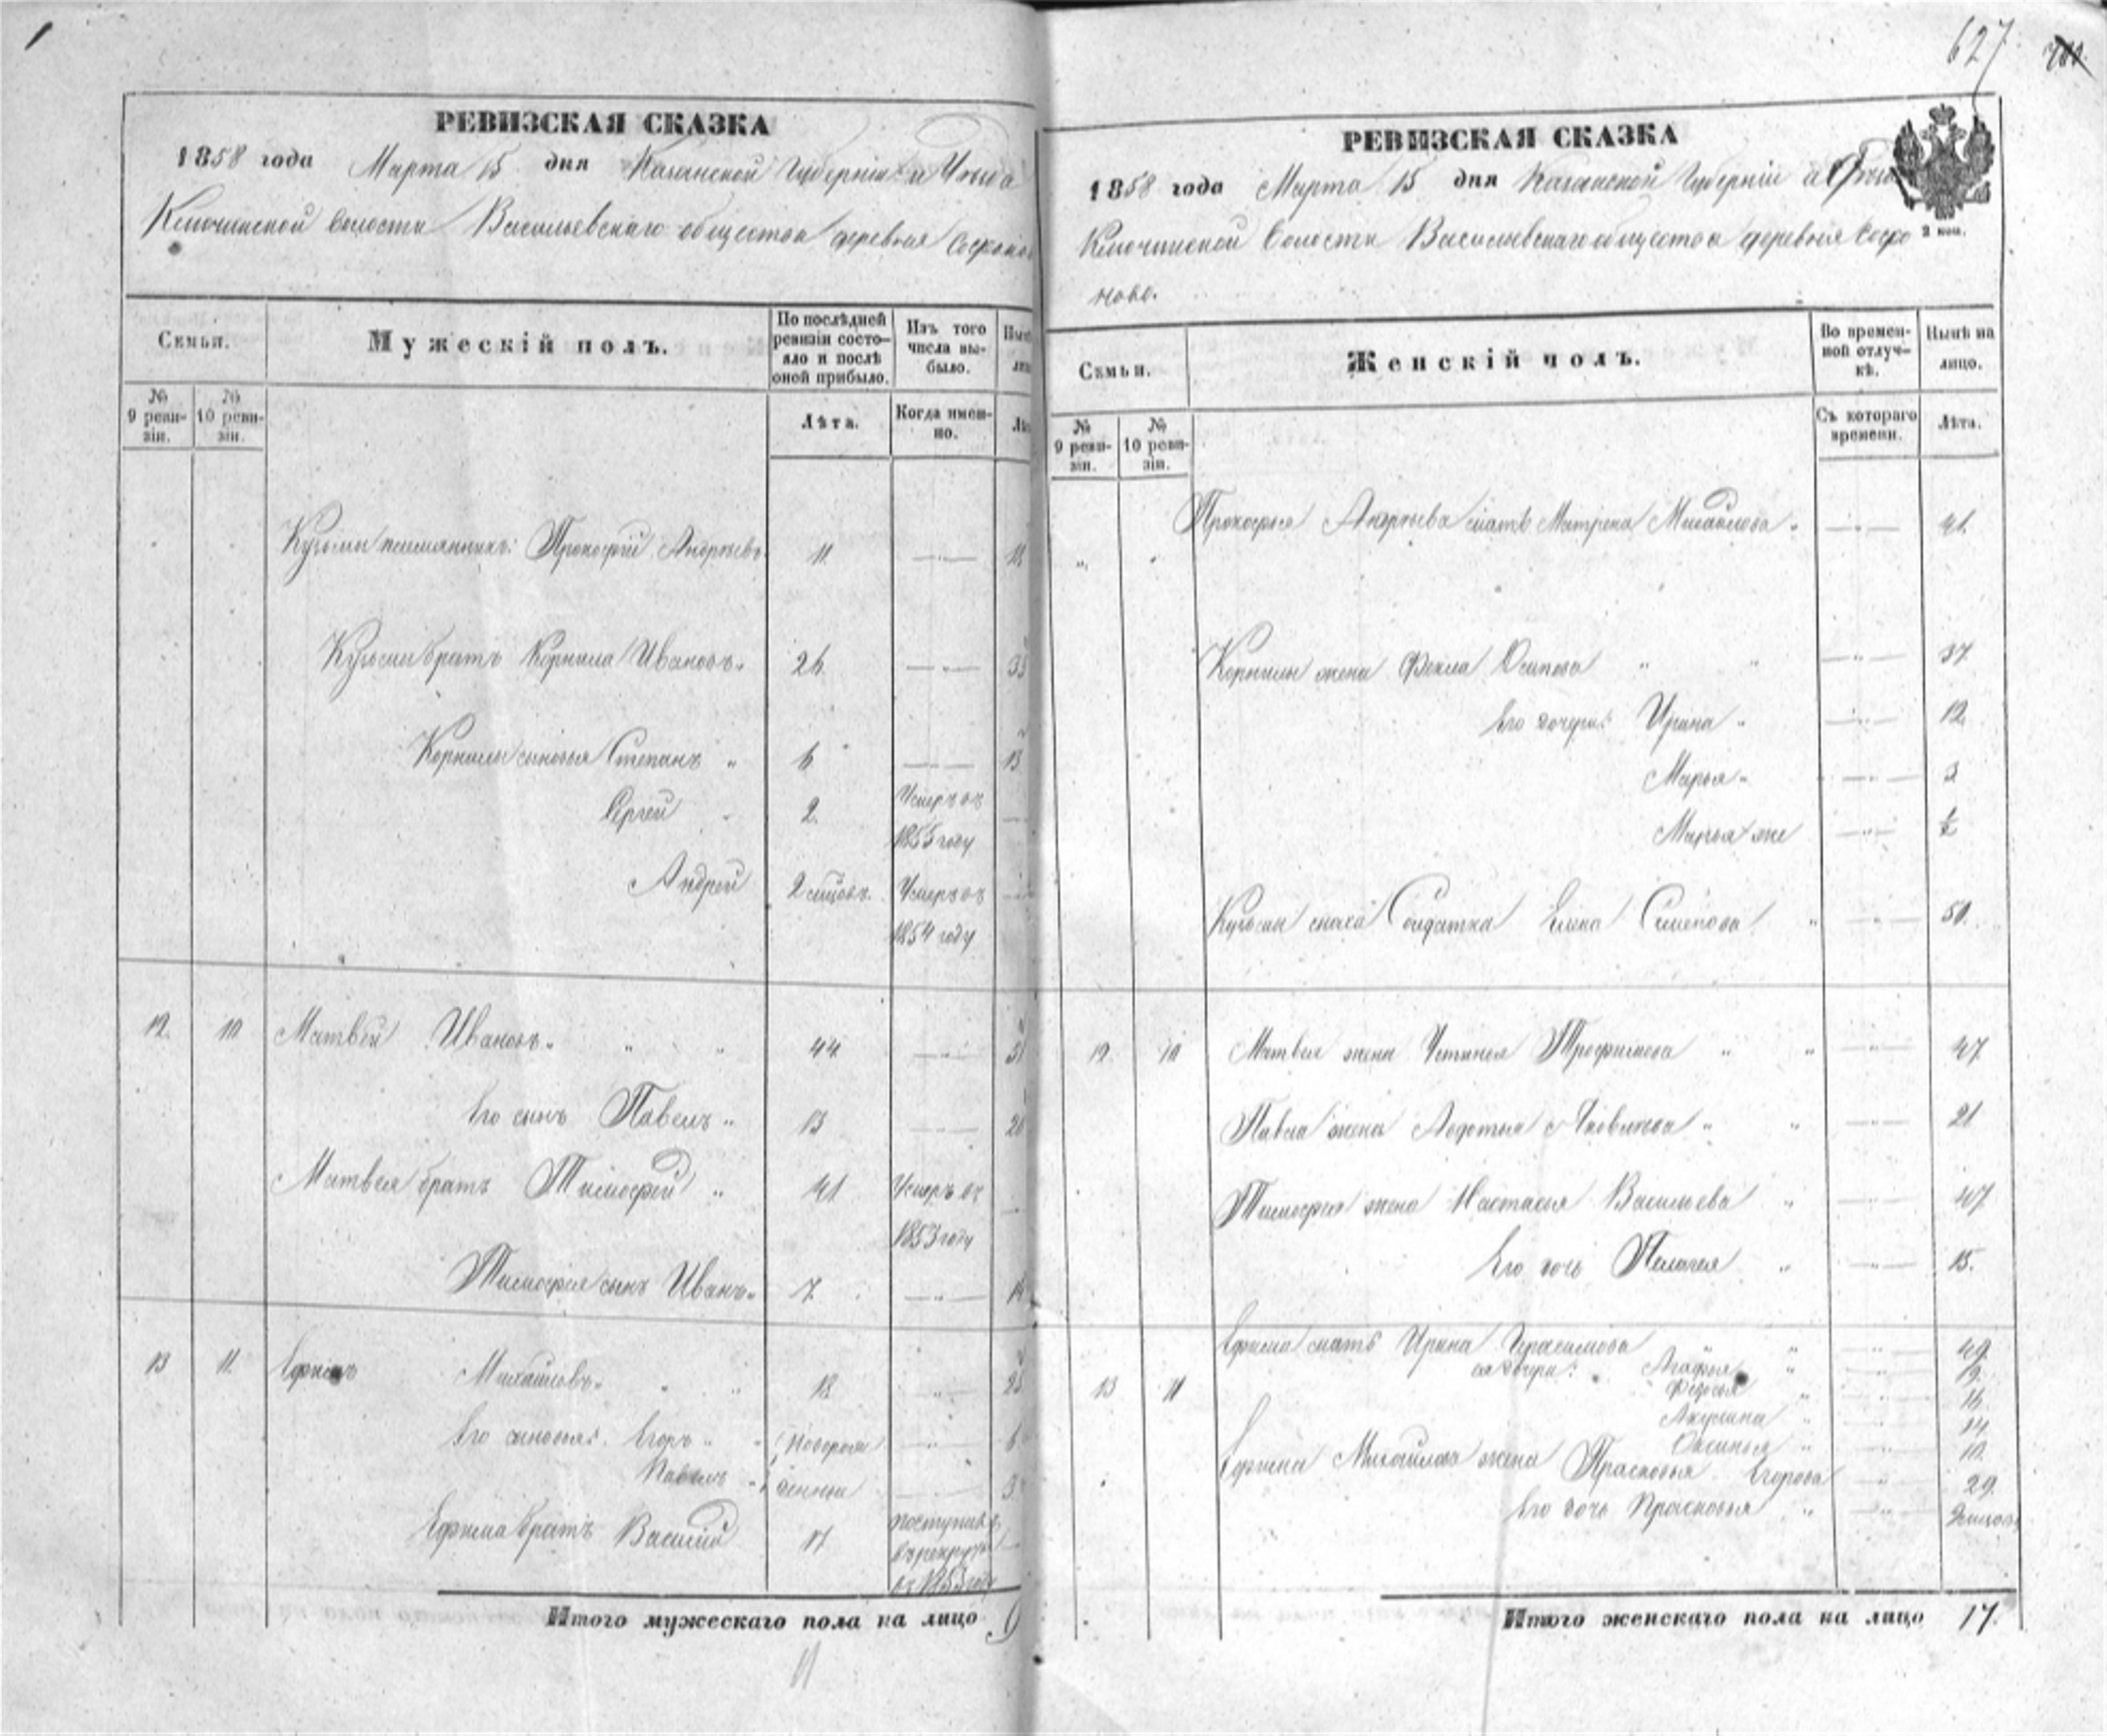 627
РЕВИЗСКАЯ СКАЗКА
1858 года Марта 15 дня Казанской Губерніи и Уѣзда
Ключинской волости Васильевскаго общества деревня Софоно
Семьи.
Мужескій полъ.
По послѣдней ревизіи состояло и послѣ оной прибыло.
Изъ того числа выбыло.
№ 9 ревизіи.
№ 10 ревизіи.
Лѣта.
Когда именно.
Кузьмы племянникъ: Прокофій Андреевъ 11
Кузьмы братъ Корнила Ивановъ. 26
Корнилы сыновья Степанъ 6 13
Сергей 2. Умеръ въ
1855 году
Андрей 2 мѣсцовъ. Умеръ въ
1854 году
12. 10 Матвей Ивановъ. 44
Его сынъ Павелъ 13
Матвея братъ Тимофей 41 Умеръ въ
1853 году
Тимофея сынъ Иванъ 7.
13 11. Ефимъ Михайловъ. 18
Его сыновья: Егоръ Новорож 6
Павелъ денные 3
Ефима братъ Василій 17 поступилъ
въ рекруты
Итого мужескаго пола на лицо 9
РЕВИЗСКАЯ СКАЗКА
1858 года Марта 15 дня Казанской Губерніи и
Ключинской волости Васильевскаго общества деревня Софо
ново.
2 коп.
Семьи.
Женскій полъ.
Во временной отлучкѣ.
Нынѣ на лицо.
№ 9 ревизіи.
№ 10 ревизіи.
Съ котораго времени.
Лѣта.
Прокофья Андреева мать Матрена Михайлова 41.
Корнилы жена Фекла Осипова 37
Его дочери: Ирина 12.
Марья 3
Марья же ½
Кузьмы сноха Солдатка Елена Семенова 50.
12. 10 Матвея жена Устинья Трофимова 47
Павла жена Авдотья Яковлева 21
Тимофея жена Настасья Васильева 47
Его дочь Пелагея 15.
Ефима мать Ирина Герасимова 49
13 11 ея дочери: Агафья 19.
Федосья 16
Акулина 14
Оксинья 10.
Ефима Михайлова жена Прасковья Егорова 29.
Его дочь Прасковья
Итого женскаго пола на лицо 17.